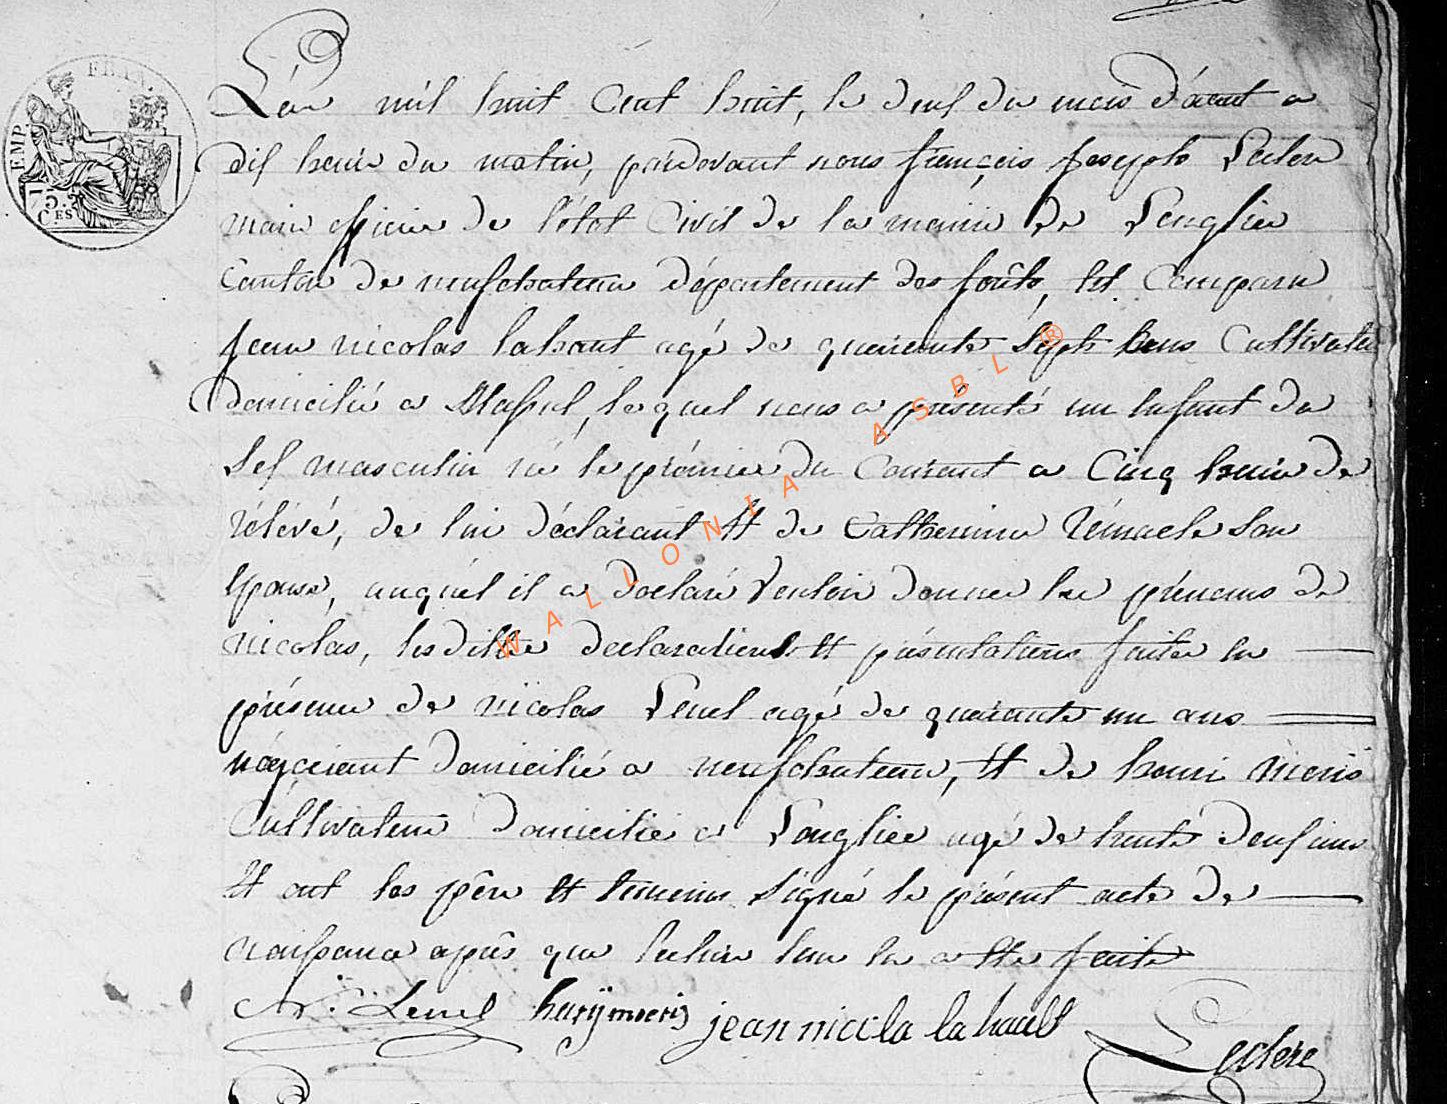 L'an mil huit Cent huit, le deuf du mois d'aout a
dix heure du matin, pardevant nous françois Joseph Leclere
maire officier de l'état Civil de la mairie de Longlier
Canton de neufchateau département des forêts, est Comparu
jean nicolas lahaut agé de quarante Septs Ans Cultivateur
domicilié a Massul, lequel nous a présenté un Enfant du
Sex masculin né le prémier du Courant a Cinq heure de
rélévé, de lui déclarant Et de Catherinne Rémacle Son
Epouse, auquél il a déclaré Vouloir donner les prénoms de
nicolas, lesdittes déclarations Et présentations faites En
présence de nicolas Lenel agé de quarante un ans
négociant domicilié a neufchateau, Et de henri moris
Cultivateur domicilié a Longlier agé de trente deuf ans
Et ont les pére Et temoins Signé le présent acte de
naissance aprés que lecture Leur En a Ete faite
Nˢ. Lenel henrÿ moris jean nicola la hault
Leclere
EMP. FRAN
75.
CES
WALLONIA ASBL ®